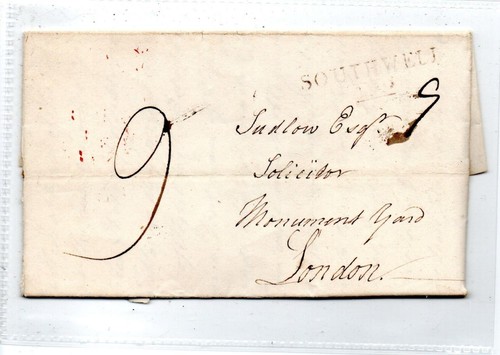 SOUTHWELL
9
9
Sudlow Esqr
Solicitor
Monument Yard
London.